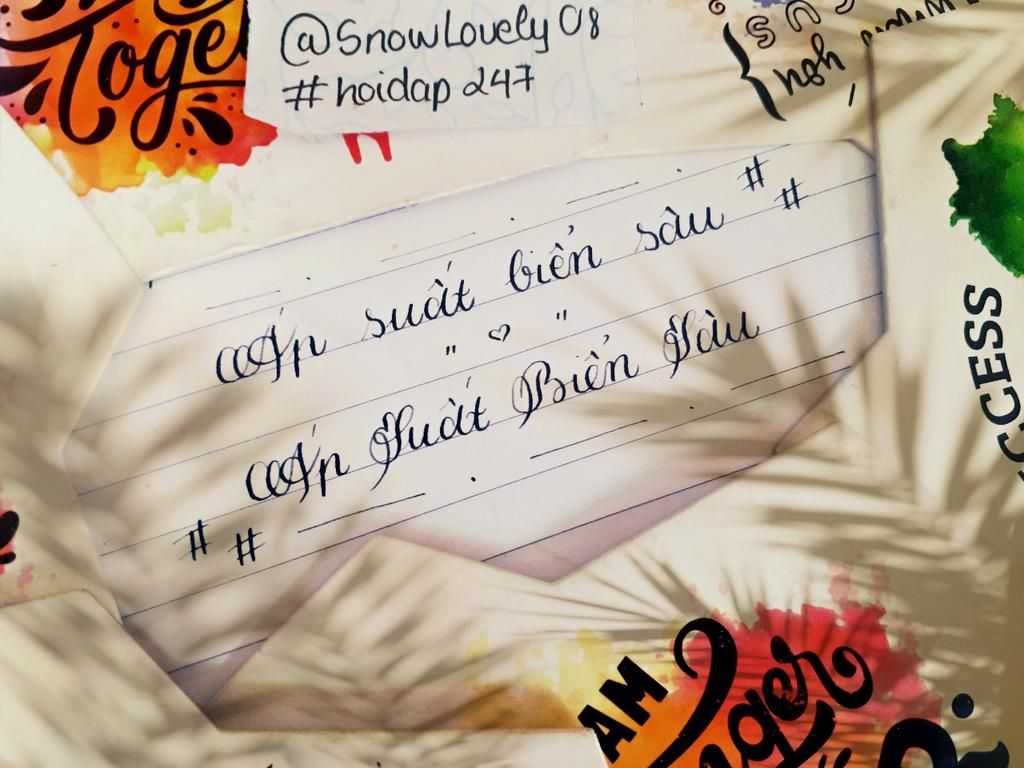 Toge
@SnowLovely08
#hoidap247
Áp suất biển sâu
Áp Suất Biển Sâu
CCESS
AM